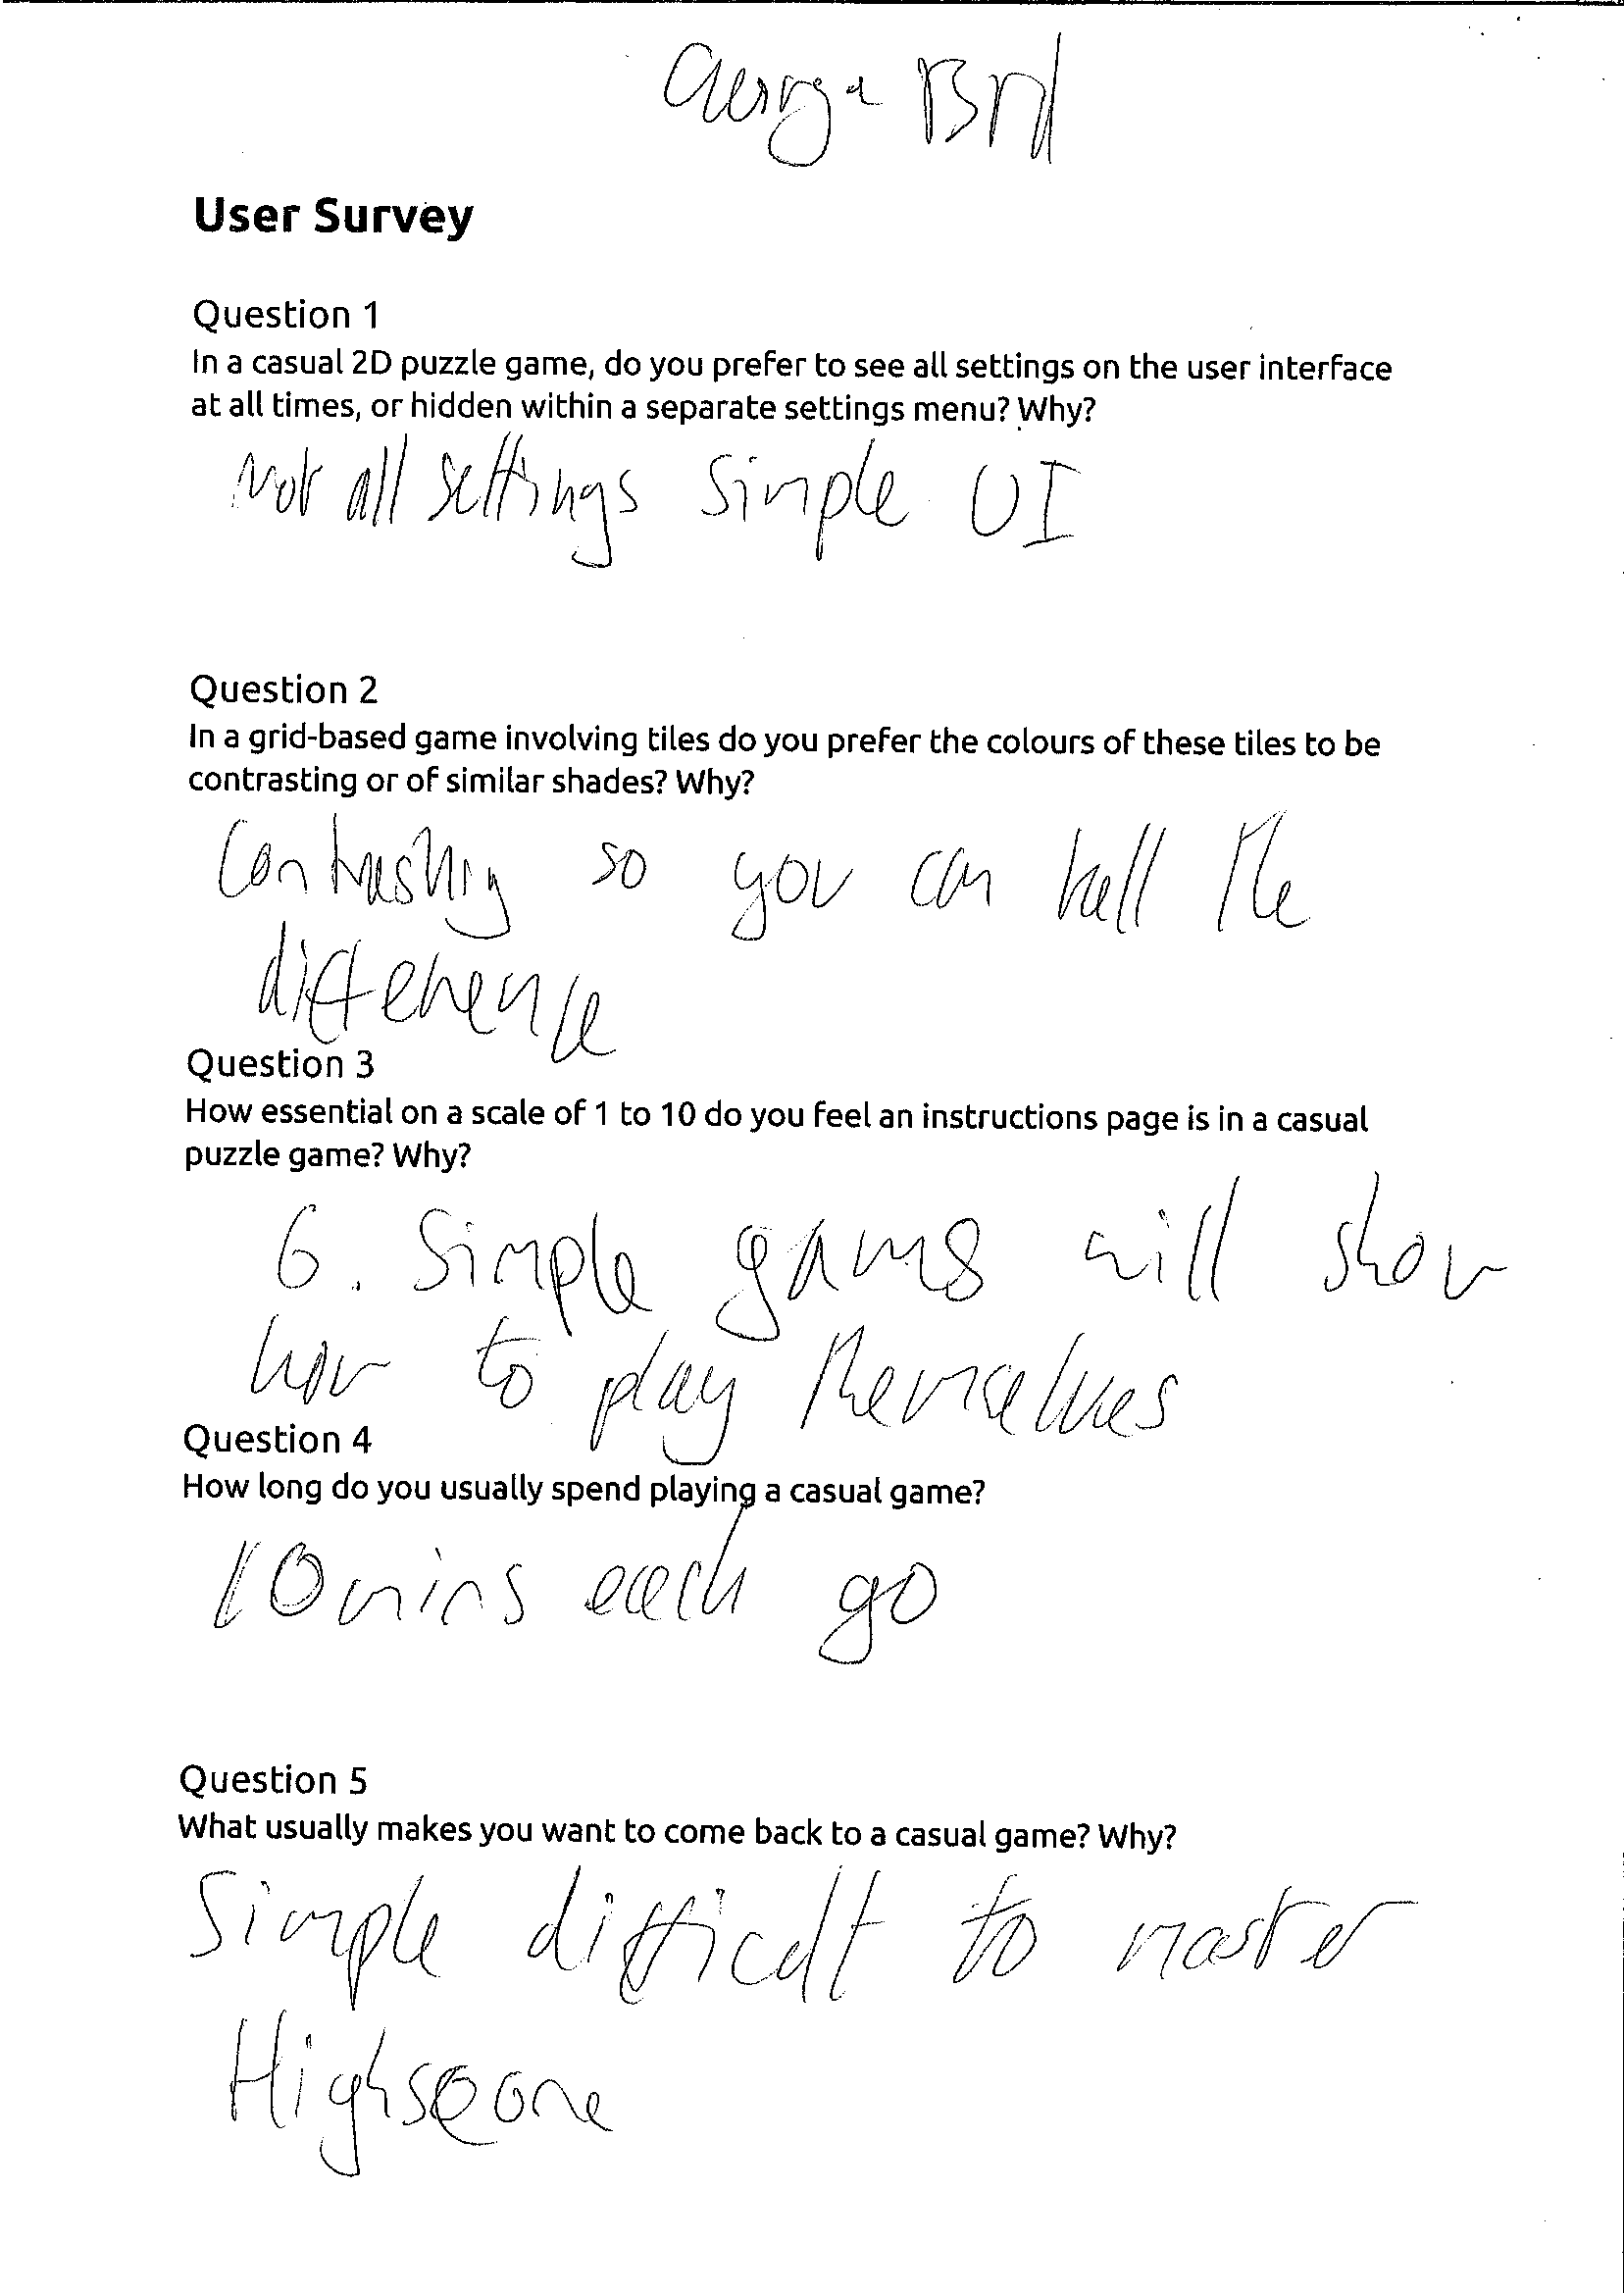 George
User Survey
Question 1
In a casual 2D puzzle game, do you prefer to see all settings on the user interface
at all times, or hidden within a separate settings menu? Why?
Not all settings simple UI
Question 2
In a grid-based game involving tiles do you prefer the colours of these tiles to be
contrasting or of similar shades? Why?
Contrasting so you can tell the
difference
Question 3
How essential on a scale of 1 to 10 do you feel an instructions page is in a casual
puzzle game? Why?
6. Simple games will show
how to play themselves
Question 4
How long do you usually spend playing a casual game?
10 mins each go
Question 5
What usually makes you want to come back to a casual game? Why?
Simple difficult to master
Highscore